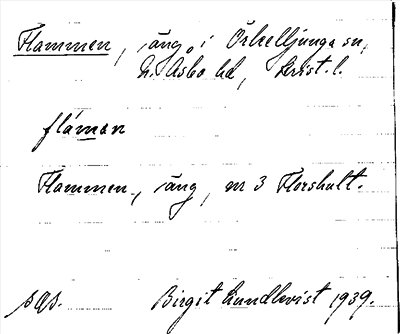 Flammen, äng, i Örkelljunga sn,
N. Åsbo hd, Krist. l.
flámən
Flammen, äng, m 3 Florshult.
sqs. Birgit Lundkvist 1939.